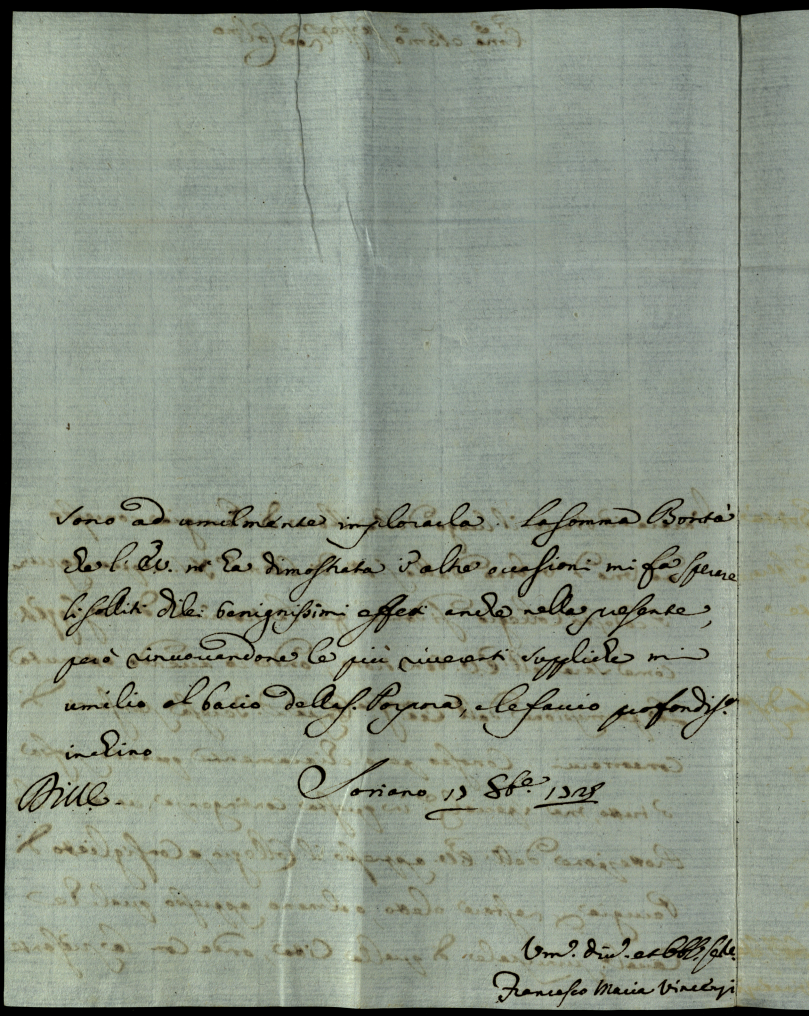 sono ad umilmente implorarla. La somma Bontà
che l'E.V. mi ha dimostrata in altre occasioni mi fa sperare
li soliti di lei benignissimi effetti anche nella presente,
però rinnovandone le più riverenti suppliche mi
umilio al bacio della S. Porpora, e le faccio profondis.mo
inchino
Soriano 17 8bre 1728
Um.o div.o et obb.
Francesco Maria Vincenzi